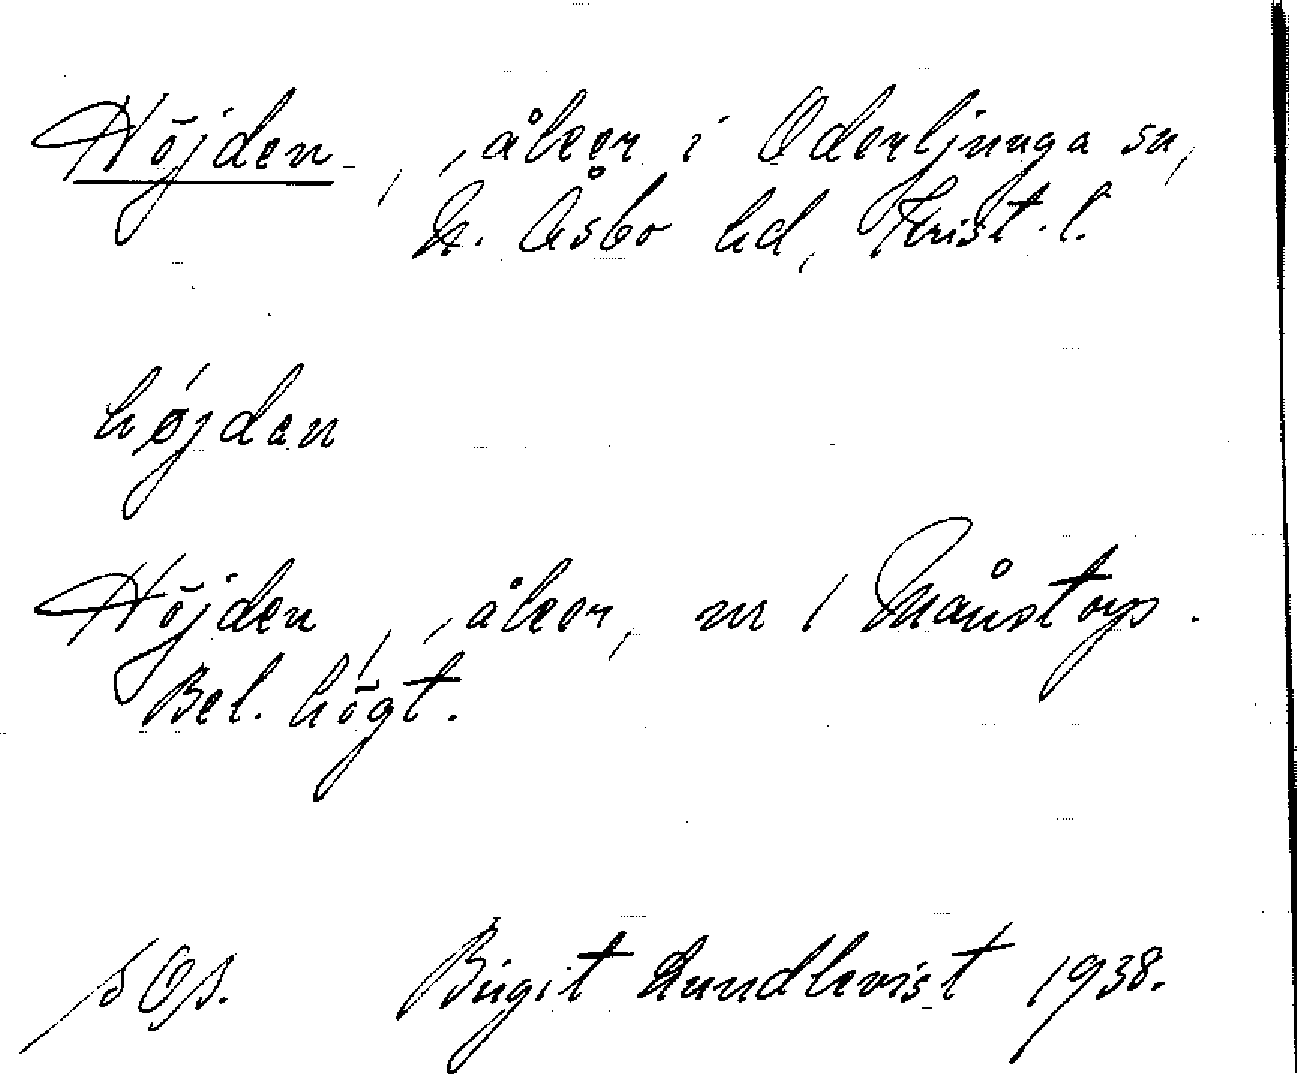 Höjden, åker i Oderljunga sn,
N. Åsbo hd, Krist. l.
højdan
Höjden, åker, nr 1 Månstorp.
Bel. högt.
Birgit Lundkvist 1938.